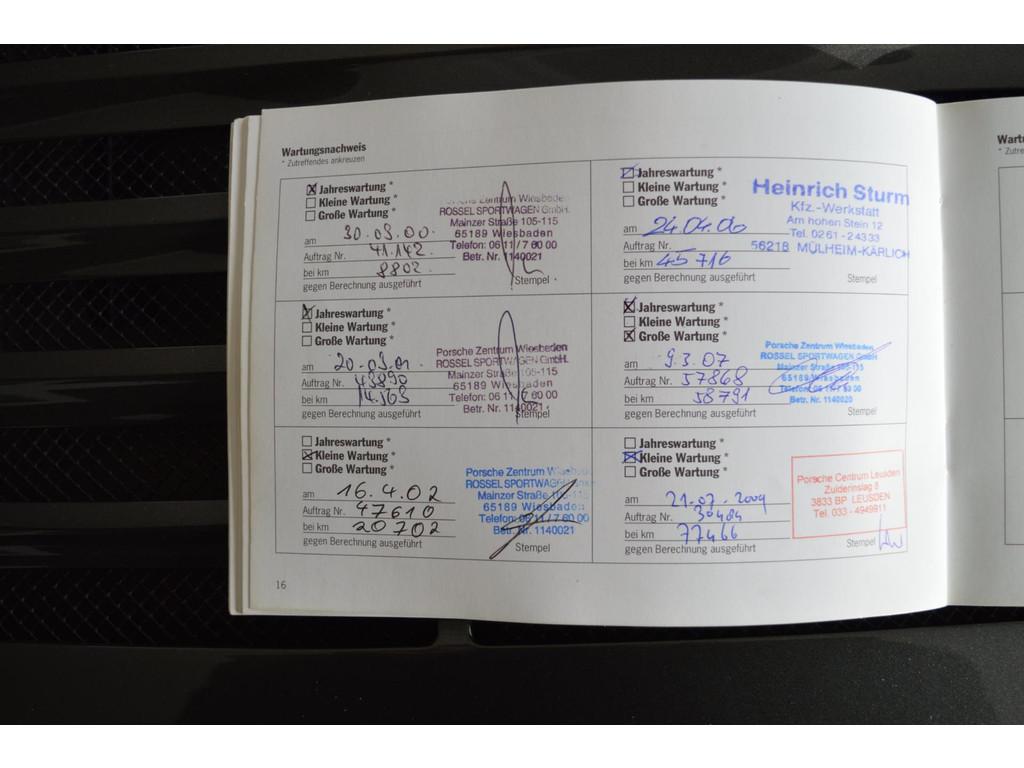 Wartungsnachweis
* Zutreffendes ankreuzen
Jahreswartung *
Kleine Wartung *
Große Wartung *
am 30.03.00.
Auftrag Nr. 41.142.
bei km 8802.
gegen Berechnung ausgeführt
Porsche Zentrum Wiesbaden
ROSSEL SPORTWAGEN GmbH.
Mainzer Straße 105-115
65189 Wiesbaden
Telefon: 06 11 / 7 60 00
Betr. Nr. 1140021
Stempel
Jahreswartung *
Kleine Wartung *
Große Wartung *
am 20.03.01.
Auftrag Nr. 43890
bei km 14.563
gegen Berechnung ausgeführt
Porsche Zentrum Wiesbaden
ROSSEL SPORTWAGEN GmbH.
Mainzer Straße 105-115
65189 Wiesbaden
Telefon: 06 11 / 7 60 00
Betr. Nr. 1140021
Stempel
Jahreswartung *
Kleine Wartung *
Große Wartung *
am 16.4.02
Auftrag Nr. 47610
bei km 20702
gegen Berechnung ausgeführt
Porsche Zentrum Wiesbaden
ROSSEL SPORTWAGEN GmbH
Mainzer Straße 105-115
65189 Wiesbaden
Telefon: 06 11 / 7 60 00
Betr. Nr. 1140021
Stempel
16
Jahreswartung *
Kleine Wartung *
Große Wartung *
am 24.04.06
Auftrag Nr.
bei km 45716
gegen Berechnung ausgeführt
Heinrich Sturm
Kfz.-Werkstatt
Am hohen Stein 12
Tel. 0261-24333
56218 MÜLHEIM-KÄRLICH
Stempel
Jahreswartung *
Kleine Wartung *
Große Wartung *
am 9.3.07
Auftrag Nr. 57868
bei km 58791
gegen Berechnung ausgeführt
Porsche Zentrum Wiesbaden
ROSSEL SPORTWAGEN GmbH
Mainzer Straße 105-115
65189 Wiesbaden
Telefon: 06 11 / 7 60 00
Betr. Nr. 1140020
Stempel
Jahreswartung *
Kleine Wartung *
Große Wartung *
am 21-07-2009
Auftrag Nr. 30484
bei km 77466
gegen Berechnung ausgeführt
Porsche Centrum Leusden
Zuiderinslag 8
3833 BP LEUSDEN
Tel. 033 - 4949911
Stempel